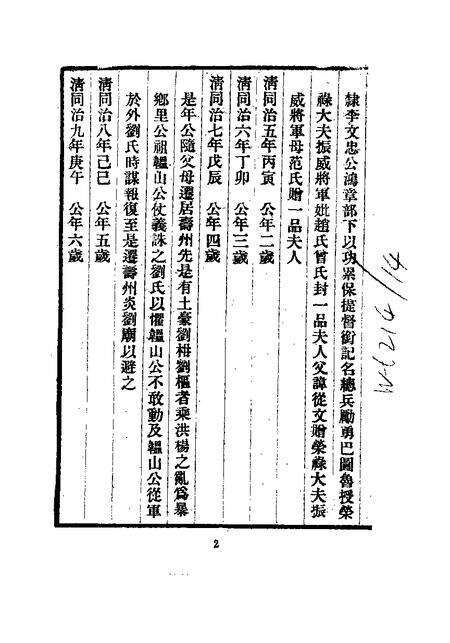 隸李文忠公鴻章部下以功累保提督銜記名總兵勵勇巴圖魯授榮
祿大夫振威將軍妣趙氏曾氏封一品夫人父諱從文贈榮祿大夫振
威將軍母范氏贈一品夫人
清同治五年丙寅 公年二歲
清同治六年丁卯 公年三歲
清同治七年戊辰 公年四歲
是年公隨父母遷居壽州先是有土豪劉枏劉樞者乘洪楊之亂爲暴
鄉里公祖韞山公仗義誅之劉氏以懼韞山公不敢動及韞山公從軍
於外劉氏時謀報復至是遷壽州炎劉廟以避之
清同治八年己巳 公年五歲
清同治九年庚午 公年六歲
2